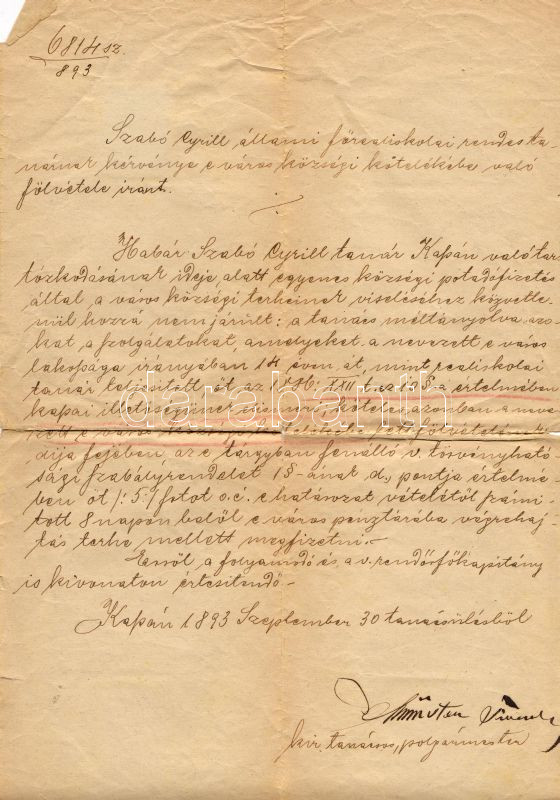 6814 sz.
893
Szabó Cyrill állami főrealiskolai rendes ta-
nárnak kérvénye e város községi kötelékébe való
fölvétele iránt.
Habár Szabó Cyrill tanár Kassán való tar-
tózkodásának ideje alatt egyenes községi pótadófizetés
által a város községi terheinek viseléséhez közvetle-
nül hozzá nem járúlt: a tanács méltányolva azo-
kat a szolgálatokat, amelyeket a nevezett e város
lakossága irányában 14 éven át, mint realiskolai
tanár teljesitett őt az 1886: XXII t. cz. § a értelmében
kassai illetőségünek köteles azonban a neve-
zett e város községi fölvételének
díja fejében az e tárgyban fenálló v. törvényható-
sági szabályrendelet 1 §-ának d., pontja értelmé-
ben öt /: 5 :/ frtot o. é. e határozat vételétől számi-
tott 8 nap alatt e város pénztárába végrehaj-
tás terhe mellett megfizetni.-
Erről a folyamodó és a v. rendőrfőkapitány
is kivonaton értesitendő.-
Kassán 1893 Szeptember 30 tanácsülésből
Münster
kir. tanácsos, polgármester
darabanth